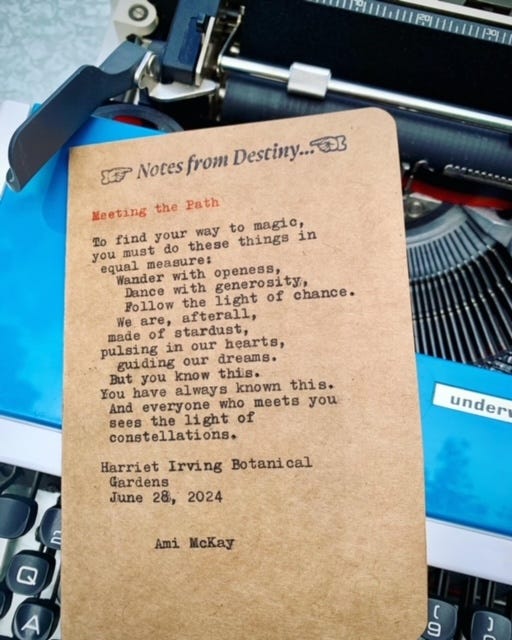 Notes from Destiny...
Meeting the Path
To find your way to magic,
you must do these things in
equal measure:
Wander with openess,
Dance with generosity,
Follow the light of chance.
We are, afterall,
made of stardust,
pulsing in our hearts,
guiding our dreams.
But you know this.
You have always known this.
And everyone who meets you
sees the light of
constellations.
Harriet Irving Botanical
Gardens
June 28, 2024
Ami McKay
underw
Q
A
[
9
]